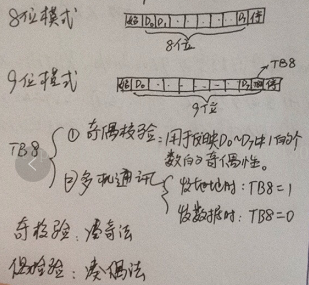 8位模式
始 D₀ D₁ · · · · · D₇ 停
8位
TB8
9位模式
始 D₀ · · · · · D₇ 停
9位
TB8
① 奇偶校验：用于反映D₀~D₇中1的个
数的奇偶性。
②多机通讯
发地址时：TB8=1
发数据时：TB8=0
奇校验：凑奇法
偶检验：凑偶法